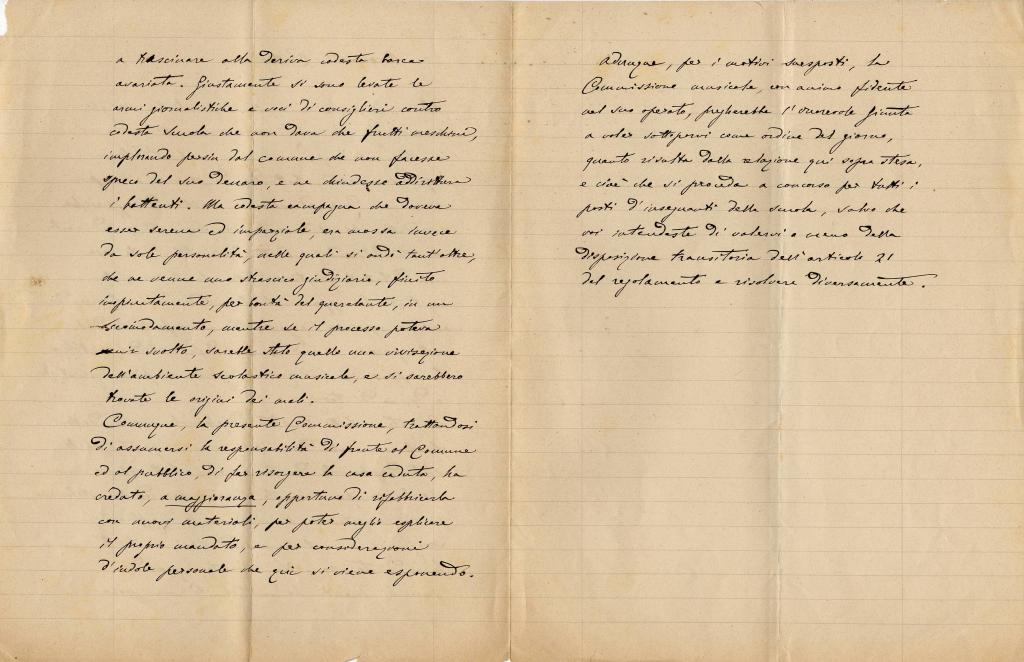 a trascinare alla deriva codesta barca
avariata. Giustamente si sono levate le
armi giornalistiche e voci di consiglieri contro
codesta scuola che non dava che frutti meschini,
implorando persin dal comune che non facesse
spreco del suo denaro, e ne chiudesse addirittura
i battenti. Ma codesta campagna che doveva
esser serena ed imparziale, era mossa invece
da sole personalità, nelle quali si andò tant'oltre,
che ne venne uno strascico giudiziario, finito
inspiratamente, per bontà del querelante, in un
accomodamento, mentre se il processo poteva
venir svolto, sarebbe stato quello una vivisezione
dell'ambiente scolastico musicale, e si sarebbero
trovate le origini dei mali.
Comunque, la presente Commissione, trattandosi
di assumersi la responsabilità di fronte al Comune
ed al pubblico, di far risorgere la casa caduta, ha
creduto, a maggioranza, opportuno di rifabbricarla
con nuovi materiali, per poter meglio esplicare
il proprio mandato, e per considerazioni
d'indole personale che qui si viene esponendo.
Adunque, per i motivi suesposti, la
Commissione musicale, con animo fidente
nel suo operato, pregherebbe l'onorevole Giunta
a voler sottoporvi come ordine del giorno,
quanto risulta dalla relazione qui sopra stesa,
e cioè che si proceda a concorso per tutti i
posti d'insegnanti della scuola, salvo che
voi intendeste di valervi o meno della
disposizione transitoria dell'articolo 21
del regolamento e risolvere diversamente.